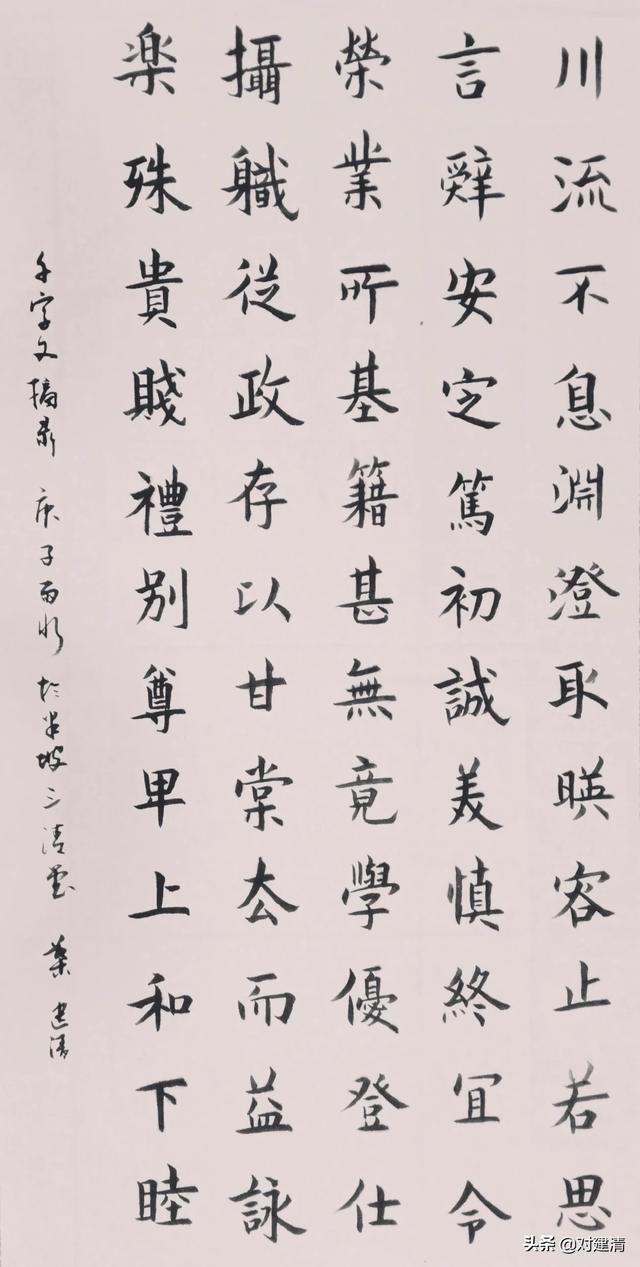 川流不息淵澄取暎容止若思
言辭安定篤初誠美慎終宜令
榮業所基籍甚無竟學優登仕
攝職從政存以甘棠去而益詠
楽殊貴賤禮別尊卑上和下睦
千字文摘录 庚子 於半坡三清堂 葉建清
头条 @对建清